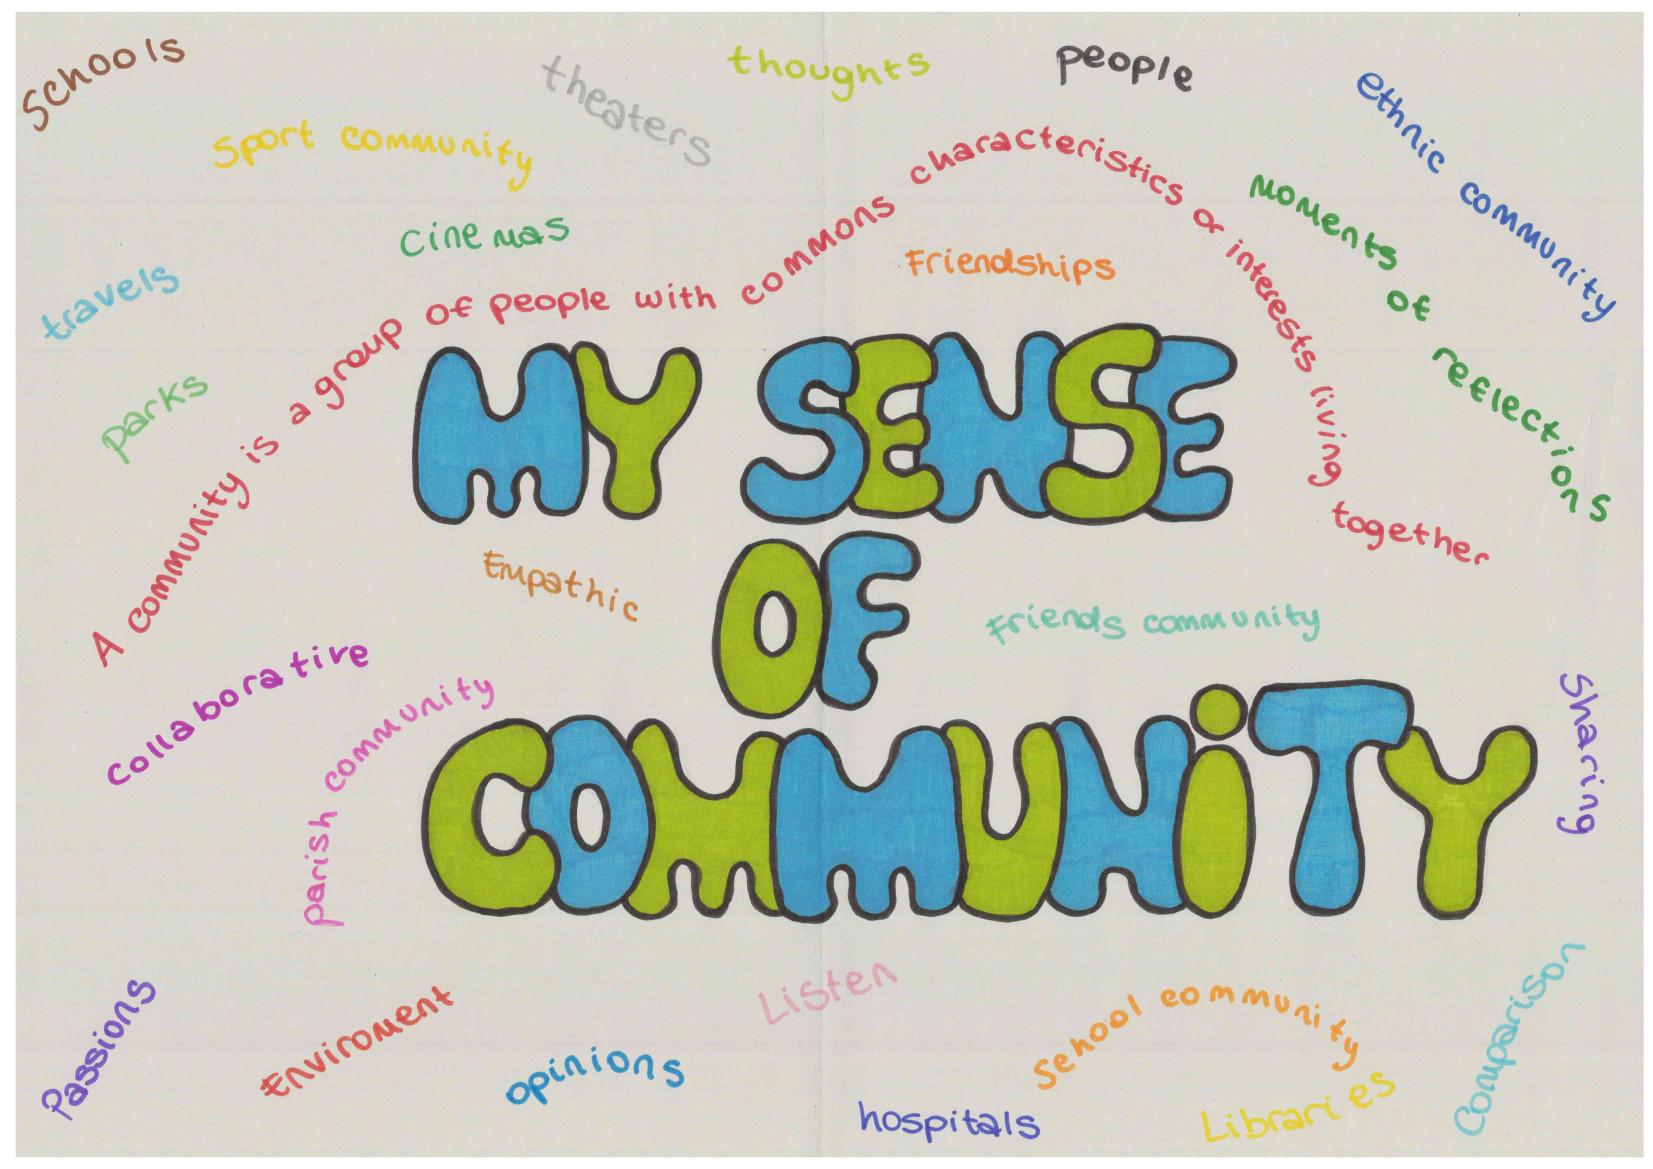 schools
theaters
thoughts
people
ethnic community
sport community
cinemas
travels
parks
A community is a group of people with commons characteristics or interests living together
Friendships
Moments of reflections
MY SENSE
OF
COMMUNiTY
Empathic
Friends community
collaborative
parish community
Sharing
Passions
Enviroment
opinions
Listen
School community
hospitals
Libraries
Comparison